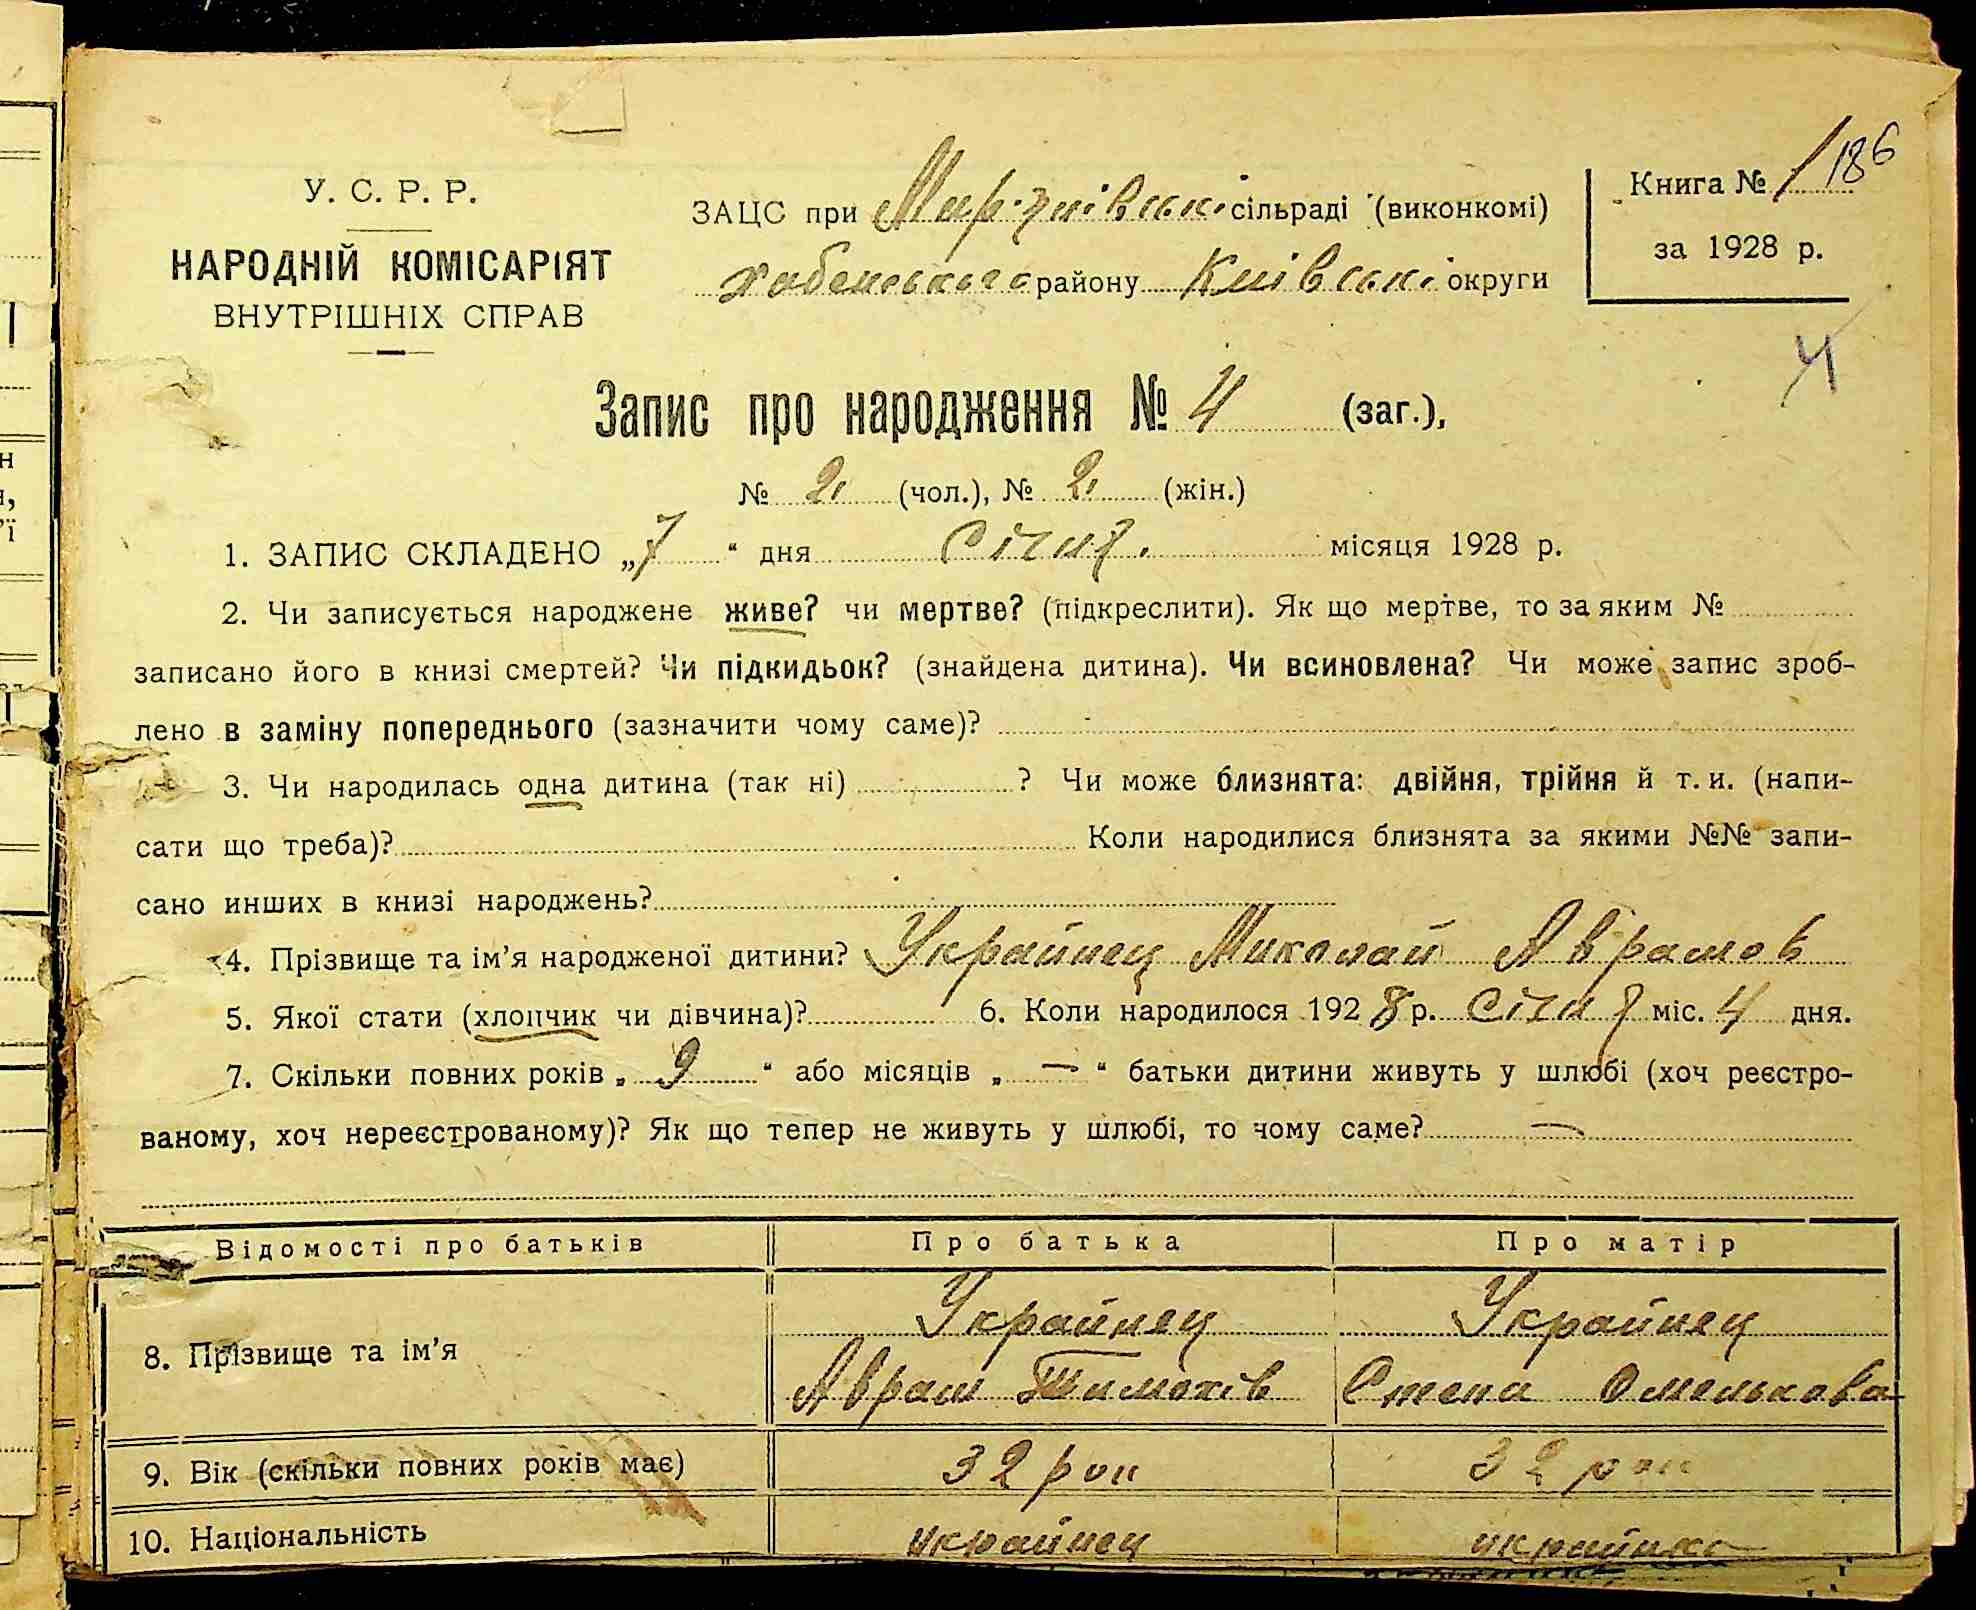 У. С. Р. Р.
НАРОДНІЙ КОМІСАРІЯТ
ВНУТРІШНІХ СПРАВ
ЗАЦС при сільраді (виконкомі)
Хабенського району Київські округи
Книга № 1 186
за 1928 р.
4
Запис про народження № 4 (заг.),
№ 2 (чол.), № 2 (жін.)
1. ЗАПИС СКЛАДЕНО „7“ дня Січня місяця 1928 р.
2. Чи записується народжене живе? чи мертве? (підкреслити). Як що мертве, то за яким №
записано його в книзі смертей? Чи підкидьок? (знайдена дитина). Чи всиновлена? Чи може запис зроб-
лено в заміну попереднього (зазначити чому саме)?
3. Чи народилась одна дитина (так ні) ? Чи може близнята: двійня, трійня й т. и. (напи-
сати що треба)? Коли народилися близнята за якими №№ запи-
сано инших в книзі народжень?
4. Прізвище та ім’я народженої дитини? Украйнец Миколай Аврамов
5. Якої стати (хлопчик чи дівчина)? 6. Коли народилося 1928 р. Січня міс. 4 дня.
7. Скільки повних років „ 9 “ або місяців „ — “ батьки дитини живуть у шлюбі (хоч реєстро-
ваному, хоч нереєстрованому)? Як що тепер не живуть у шлюбі, то чому саме? —
Відомості про батьків Про батька Про матір
8. Прізвище та ім’я Украйнец Украйнец
Аврам Тимохів Степа Омелькова
9. Вік (скільки повних років має) 32 рок 32 рок
10. Національність украйнец украйнка